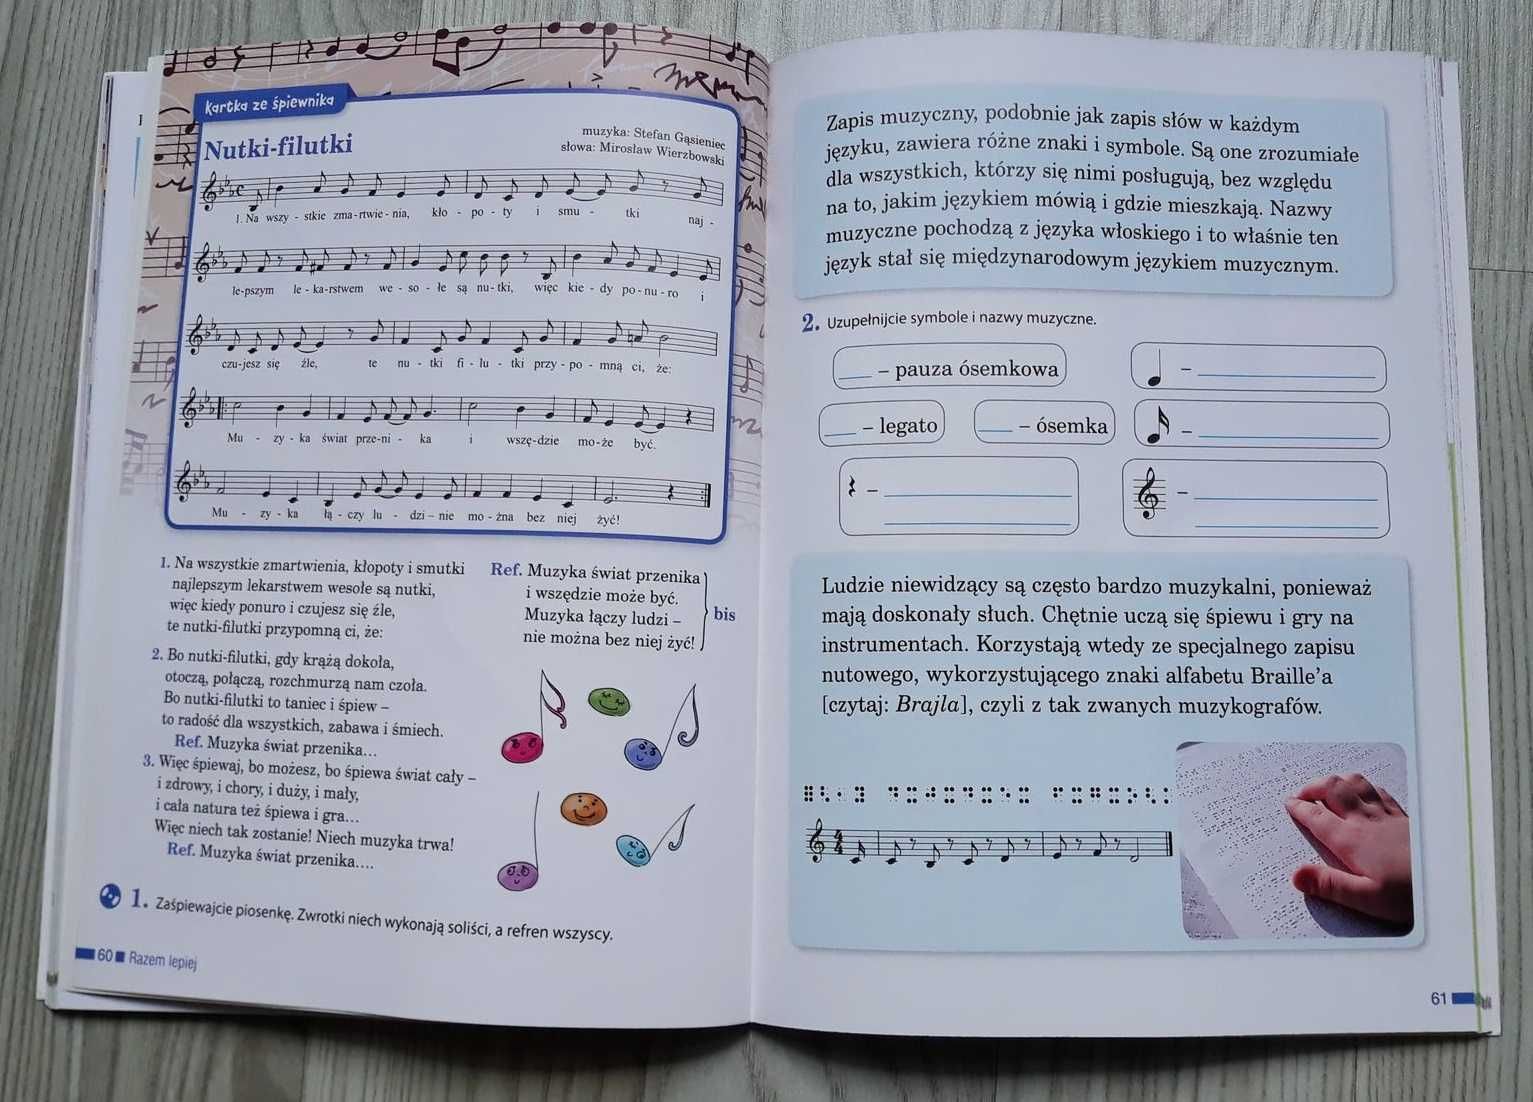 kartka ze śpiewnika
Nutki-filutki
muzyka: Stefan Gąsieniec
słowa: Mirosław Wierzbowski
1. Na wszy - stkie zma - rtwie - nia, kło - po - ty i smu - tki naj -
le-pszym le - ka-rstwem we - so - łe są nu-tki, więc kie - dy po-nu-ro i
czu-jesz się źle, te nu - tki fi - lu - tki przy - po - mną ci, że:
Mu - zy - ka świat prze-ni - ka i wszę-dzie mo-że być.
Mu - zy - ka łą - czy lu - dzi – nie mo - żna bez niej żyć!
1. Na wszystkie zmartwienia, kłopoty i smutki
najlepszym lekarstwem wesołe są nutki,
więc kiedy ponuro i czujesz się źle,
te nutki-filutki przypomną ci, że:
Ref. Muzyka świat przenika
i wszędzie może być.
Muzyka łączy ludzi –
nie można bez niej żyć!
bis
2. Bo nutki-filutki, gdy krążą dokoła,
otoczą, połączą, rozchmurzą nam czoła.
Bo nutki-filutki to taniec i śpiew –
to radość dla wszystkich, zabawa i śmiech.
Ref. Muzyka świat przenika...
3. Więc śpiewaj, bo możesz, bo śpiewa świat cały –
i zdrowy, i chory, i duży, i mały,
i cała natura też śpiewa i gra...
Więc niech tak zostanie! Niech muzyka trwa!
Ref. Muzyka świat przenika....
1. Zaśpiewajcie piosenkę. Zwrotki niech wykonają soliści, a refren wszyscy.
60 Razem lepiej
Zapis muzyczny, podobnie jak zapis słów w każdym
języku, zawiera różne znaki i symbole. Są one zrozumiałe
dla wszystkich, którzy się nimi posługują, bez względu
na to, jakim językiem mówią i gdzie mieszkają. Nazwy
muzyczne pochodzą z języka włoskiego i to właśnie ten
język stał się międzynarodowym językiem muzycznym.
2. Uzupełnijcie symbole i nazwy muzyczne.
– pauza ósemkowa
–
– legato
– ósemka
–
–
–
Ludzie niewidzący są często bardzo muzykalni, ponieważ
mają doskonały słuch. Chętnie uczą się śpiewu i gry na
instrumentach. Korzystają wtedy ze specjalnego zapisu
nutowego, wykorzystującego znaki alfabetu Braille'a
[czytaj: Brajla], czyli z tak zwanych muzykografów.
4
4
61